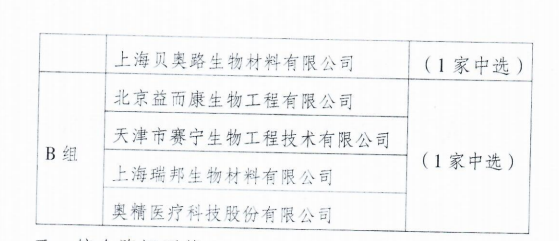 上海贝奥路生物材料有限公司 (1家中选)
北京益而康生物工程有限公司
天津市赛宁生物工程技术有限公司
B 组 (1家中选)
上海瑞邦生物材料有限公司
奥精医疗科技股份有限公司